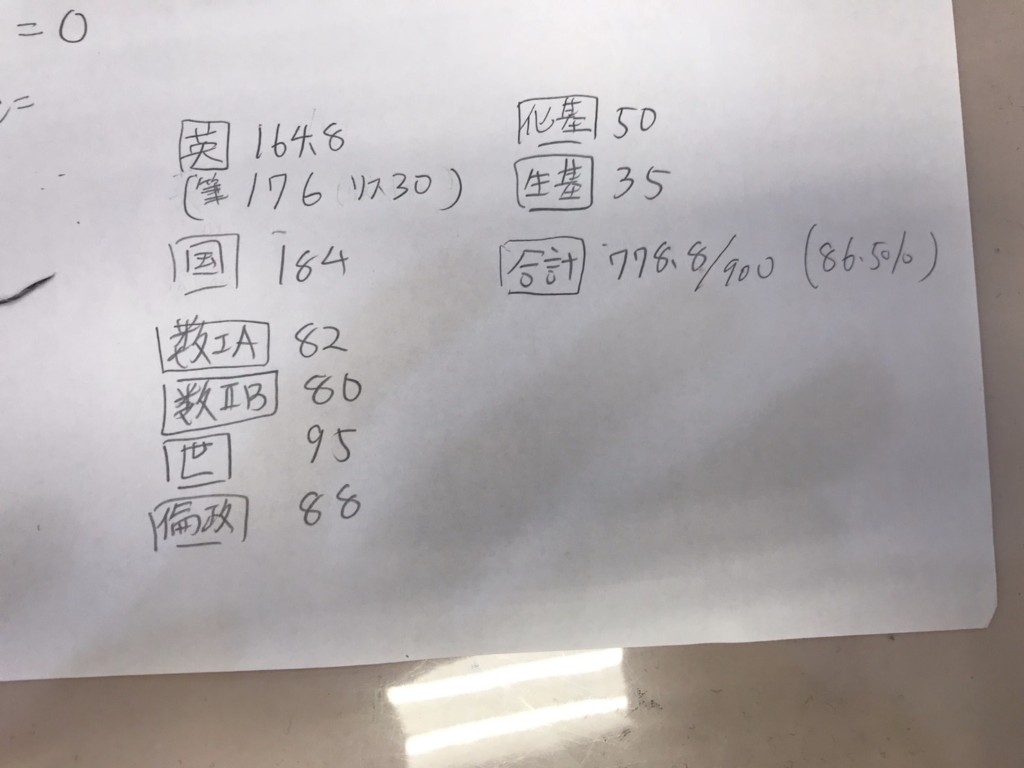 = 0
=
英 164.8
(筆 176 リス30)
国 184
数IA 82
数ⅡB 80
世 95
倫政 88
化基 50
生基 35
合計 778.8/900 (86.5%)